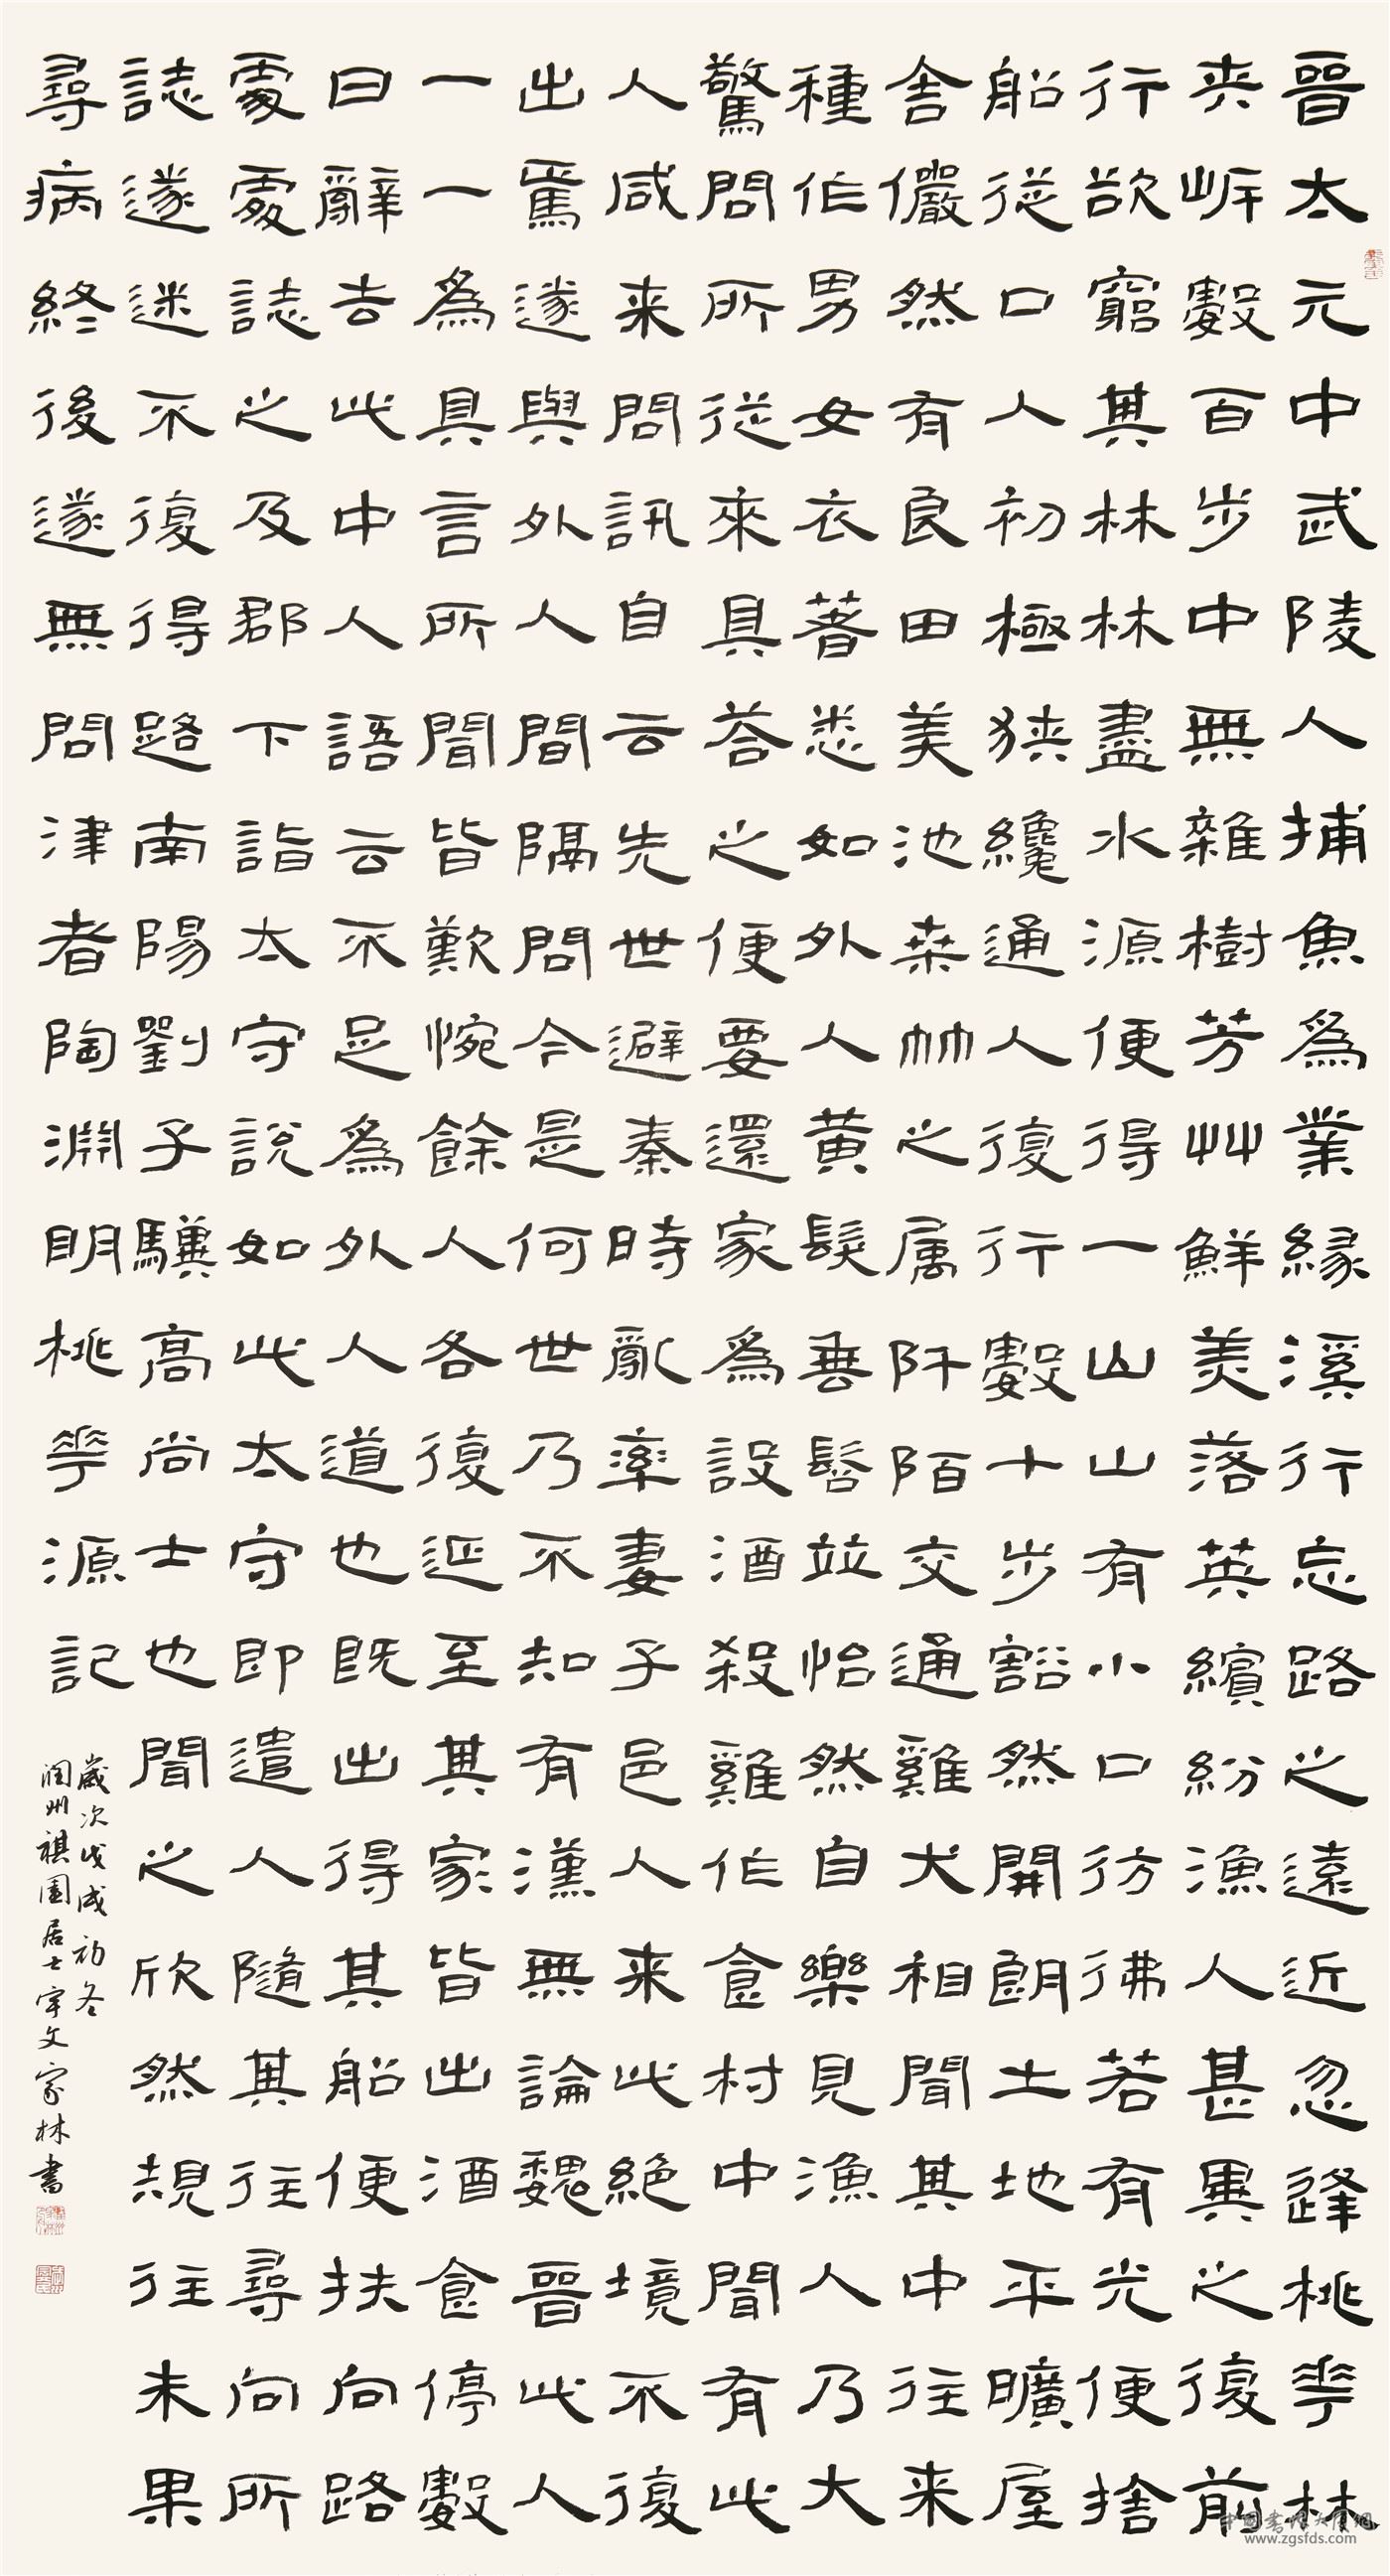 晉太元中武陵人捕魚為業緣溪行忘路之遠近忽逢桃華林
夾岸數百步中無雜樹芳艸鮮美落英繽紛漁人甚異之復前
行欲窮其林林盡水源便得一山山有小口彷彿若有光便捨
船從口人初極狹纔通人復行數十步豁然開朗土地平曠屋
舍儼然有良田美池桑竹之屬阡陌交通雞犬相聞其中往来
種作男女衣著悉如外人黃髮垂髫並怡然自樂見漁人乃大
驚問所從來具荅之便要還家為設酒殺雞作食村中聞有此
人咸来問訊自云先世避秦時亂率妻子邑人来此絕境不復
出焉遂與外人間隔問今是何世乃不知有漢無論魏晉此人
一一為具言所聞皆歎惋餘人各復延至其家皆出酒食停數
日辭去此中人語云不足為外人道也既出得其船便扶向路
處處誌之及郡下詣太守說如此太守即遣人隨其往尋向所
誌遂迷不復得路南陽劉子驥高尚士也聞之欣然規往未果
尋病終後遂無問津者陶淵明桃華源記
歲次戊戌初冬
潤州祺園居士宇文家林書
中國書法大廈網
www.zgsfds.com